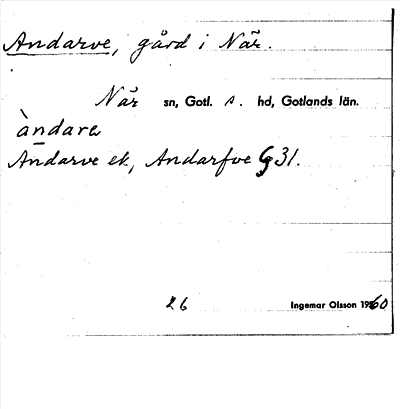 Andarve, gård i När.
När sn, Gotl. s. hd, Gotlands län.
àndarɑ
Andarve ek, Andarfve G 31.
26 Ingemar Olsson 1960